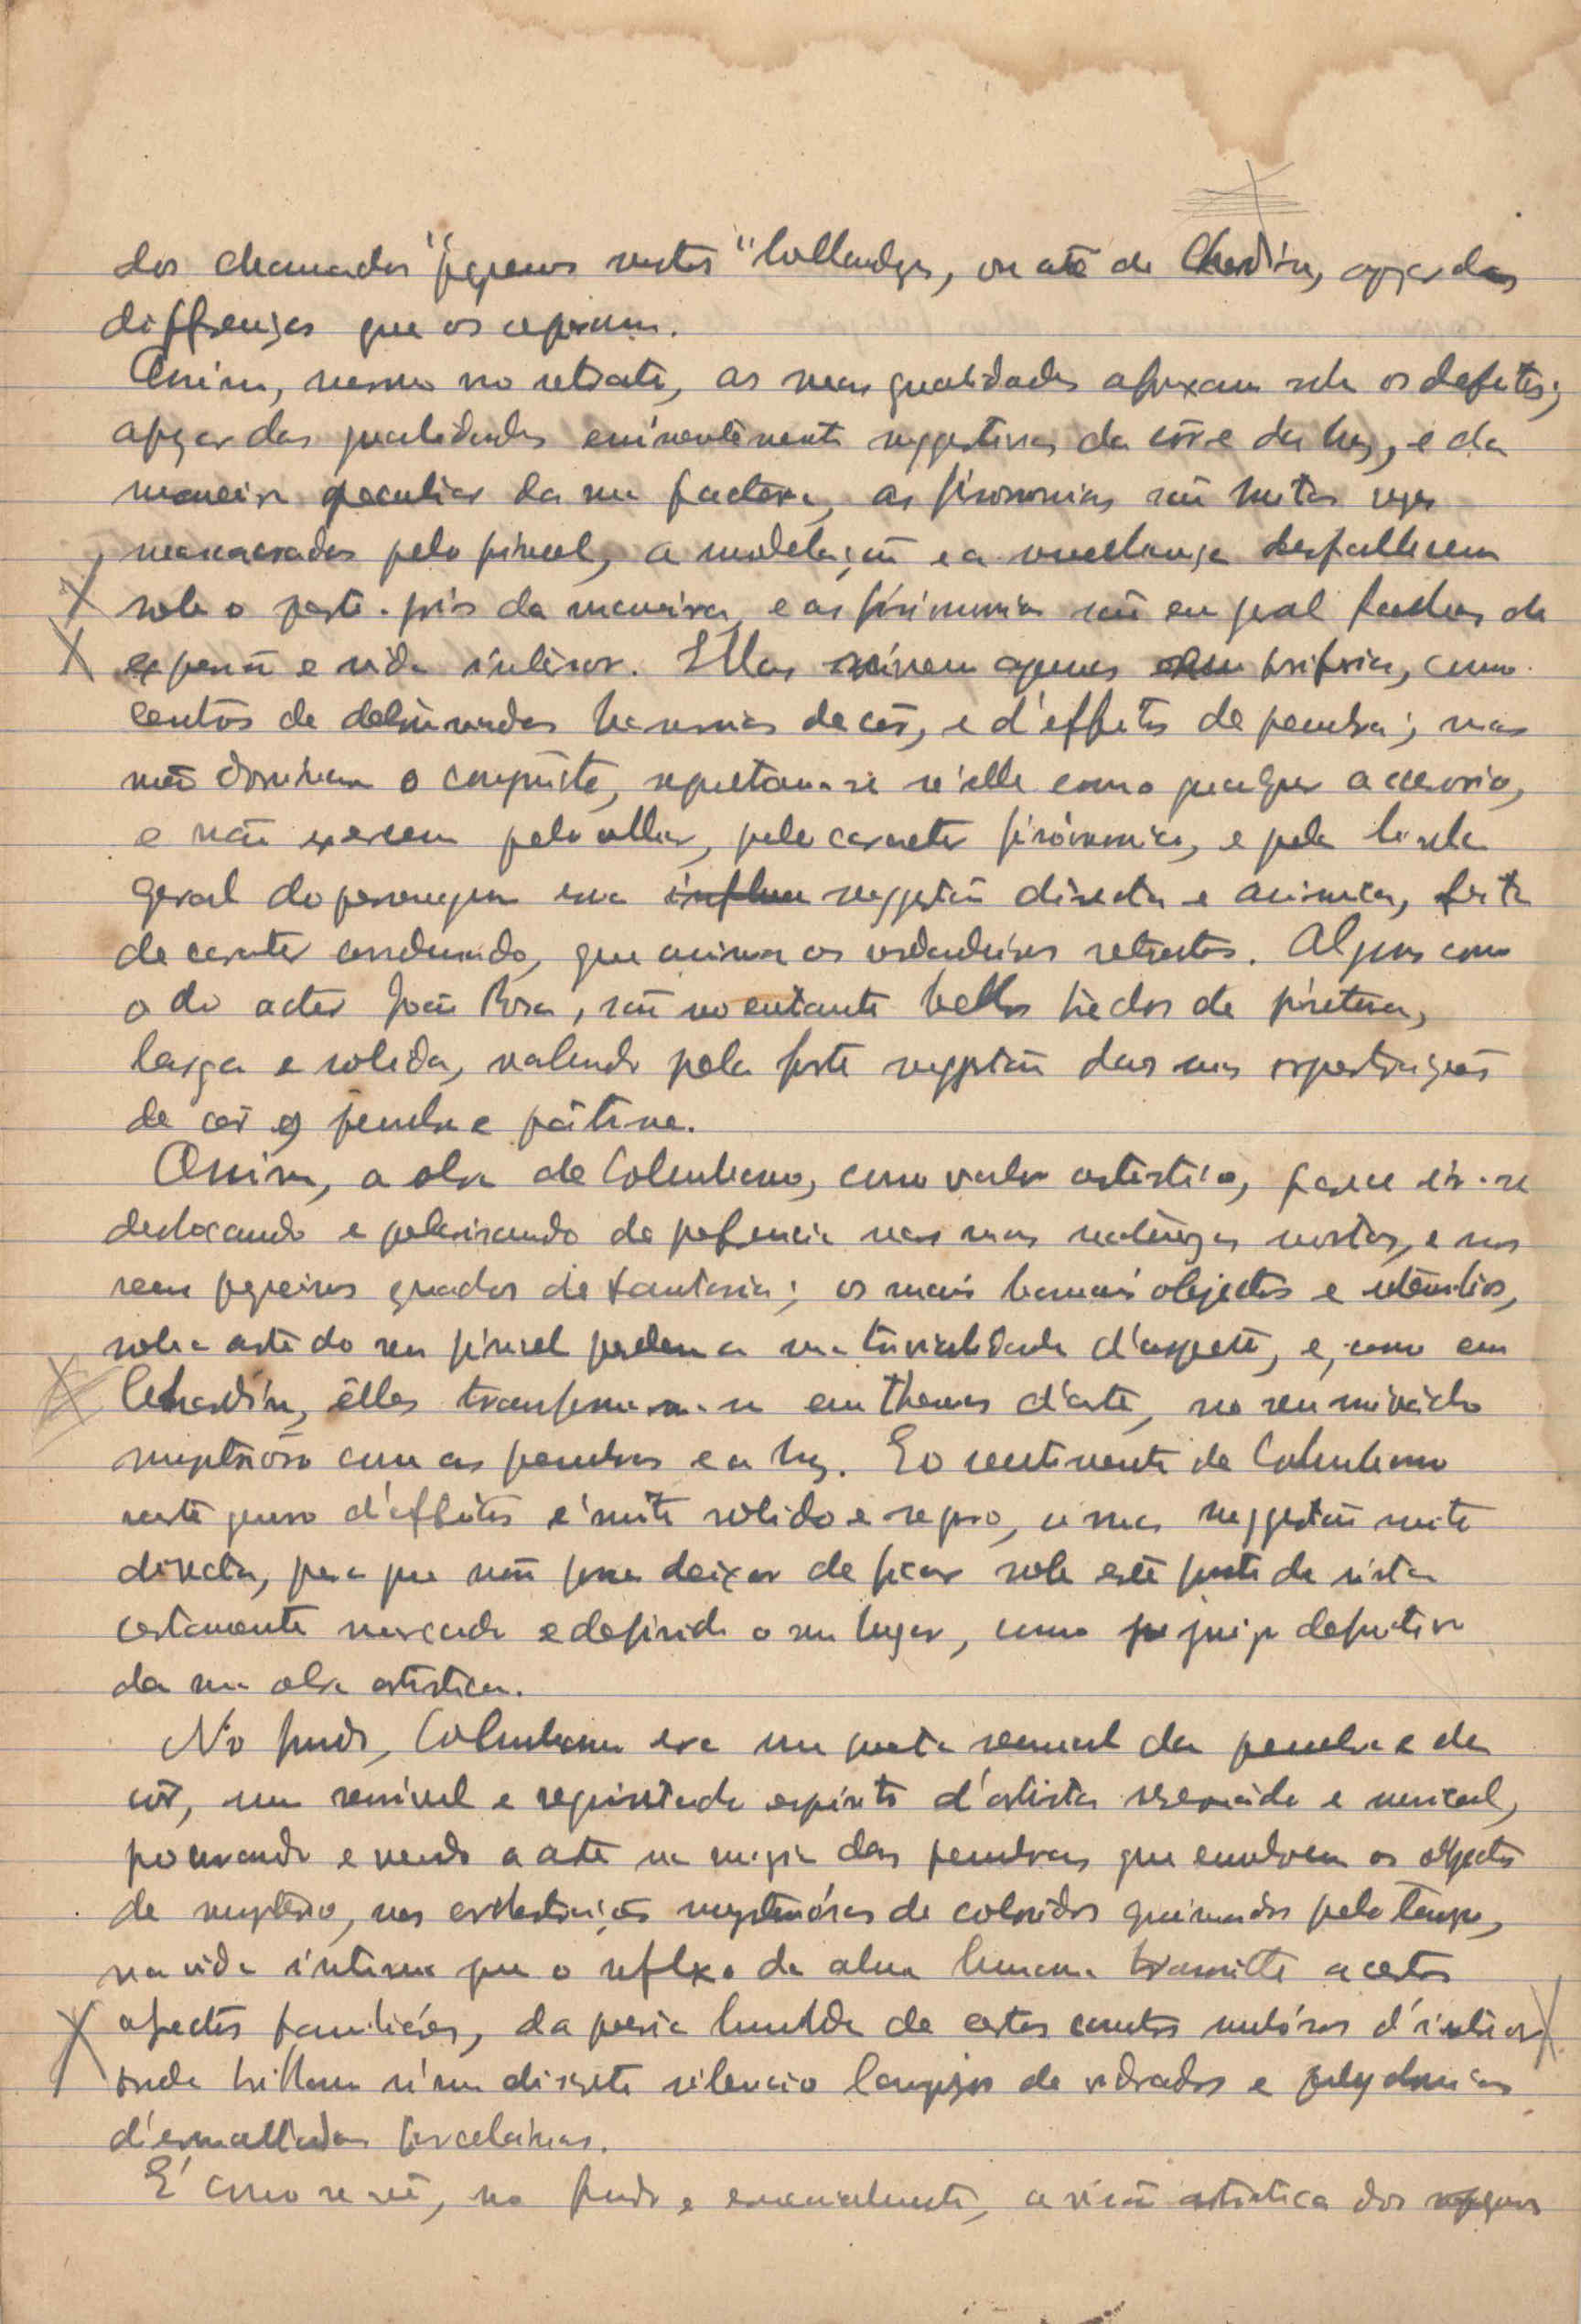 dos chamados "pequenos mestres" hollandezes, ou até de Chardin, apezar das
differenças que os separam.
Assim, mesmo no retrato, as suas qualidades afrouxam sob os defeitos;
apezar das qualidades eminentemente suggestivas da côr e da luz, e da
maneira peculiar da sua factura, as fisionomias são muitas vezes
mascaradas pelo pincel, a modelação e a semelhança desfallecem
sob o parti-pris da maneira, e as fisionomias são em geral fechadas de
expressão e vida interior. Ellas servem apenas como centros de
centros de delineadas harmonias de côr, e d'effeitos de penumbra; mas
não dominam o conjuncto, n'elle como qualquer accessorio,
e não exercem pelo olhar, pelo caracter fisionomico, e pela
geral do personagem essa influen suggestão directa e animica, feita
de caracter condensado, que anima os verdadeiros retratos. Alguns como
o do actor João Rosa, são no entanto bellos trechos de pintura,
larga e solida, valendo pela forte suggestão das suas orquestrações
de côr e penumbra e pátine.
Assim, a obra de Columbano, como valor artistico, parece ir-se
deslocando e polarisando de preferencia nas suas naturezas mortas, e nos
seus pequenos quadros de fantasia; os mais banais objectos e utensilios,
sob a arte do seu pincel perdem a sua trivialidade d'aspecto, e, como em
Chardin, élles transformam-se em themas d'arte, no seu
mysterioso com as penumbras e a luz. E o sentimento de Columbano
neste genero d'effeitos é muito solido e seguro, e uma suggestão muito
directa, para que não possa deixar de ficar sob este ponto de vista
certamente marcado e definido o seu lugar, como juizo definitivo
da sua obra artistica.
No fundo, Columbano era um poeta sensual da penumbra e da
côr, um sensivel e requintado espirito d'artista e musical,
procurando e vendo a arte na magia das penumbras que envolvem os objectos
de mysterio, nas orchestrações mysteriósas de coloridos queimados pelo tempo,
na vida interna que o reflexo da alma humana transmitte a certos
aspectos familiáres, da poesia humilde de certos cantos d'interiores
onde brilham n'um discreto silencio lampejos de vidrados e polychromias
d'esmaltadas porcelanas.
E' como se vê, no fundo e essencialmente, a visão artistica dos